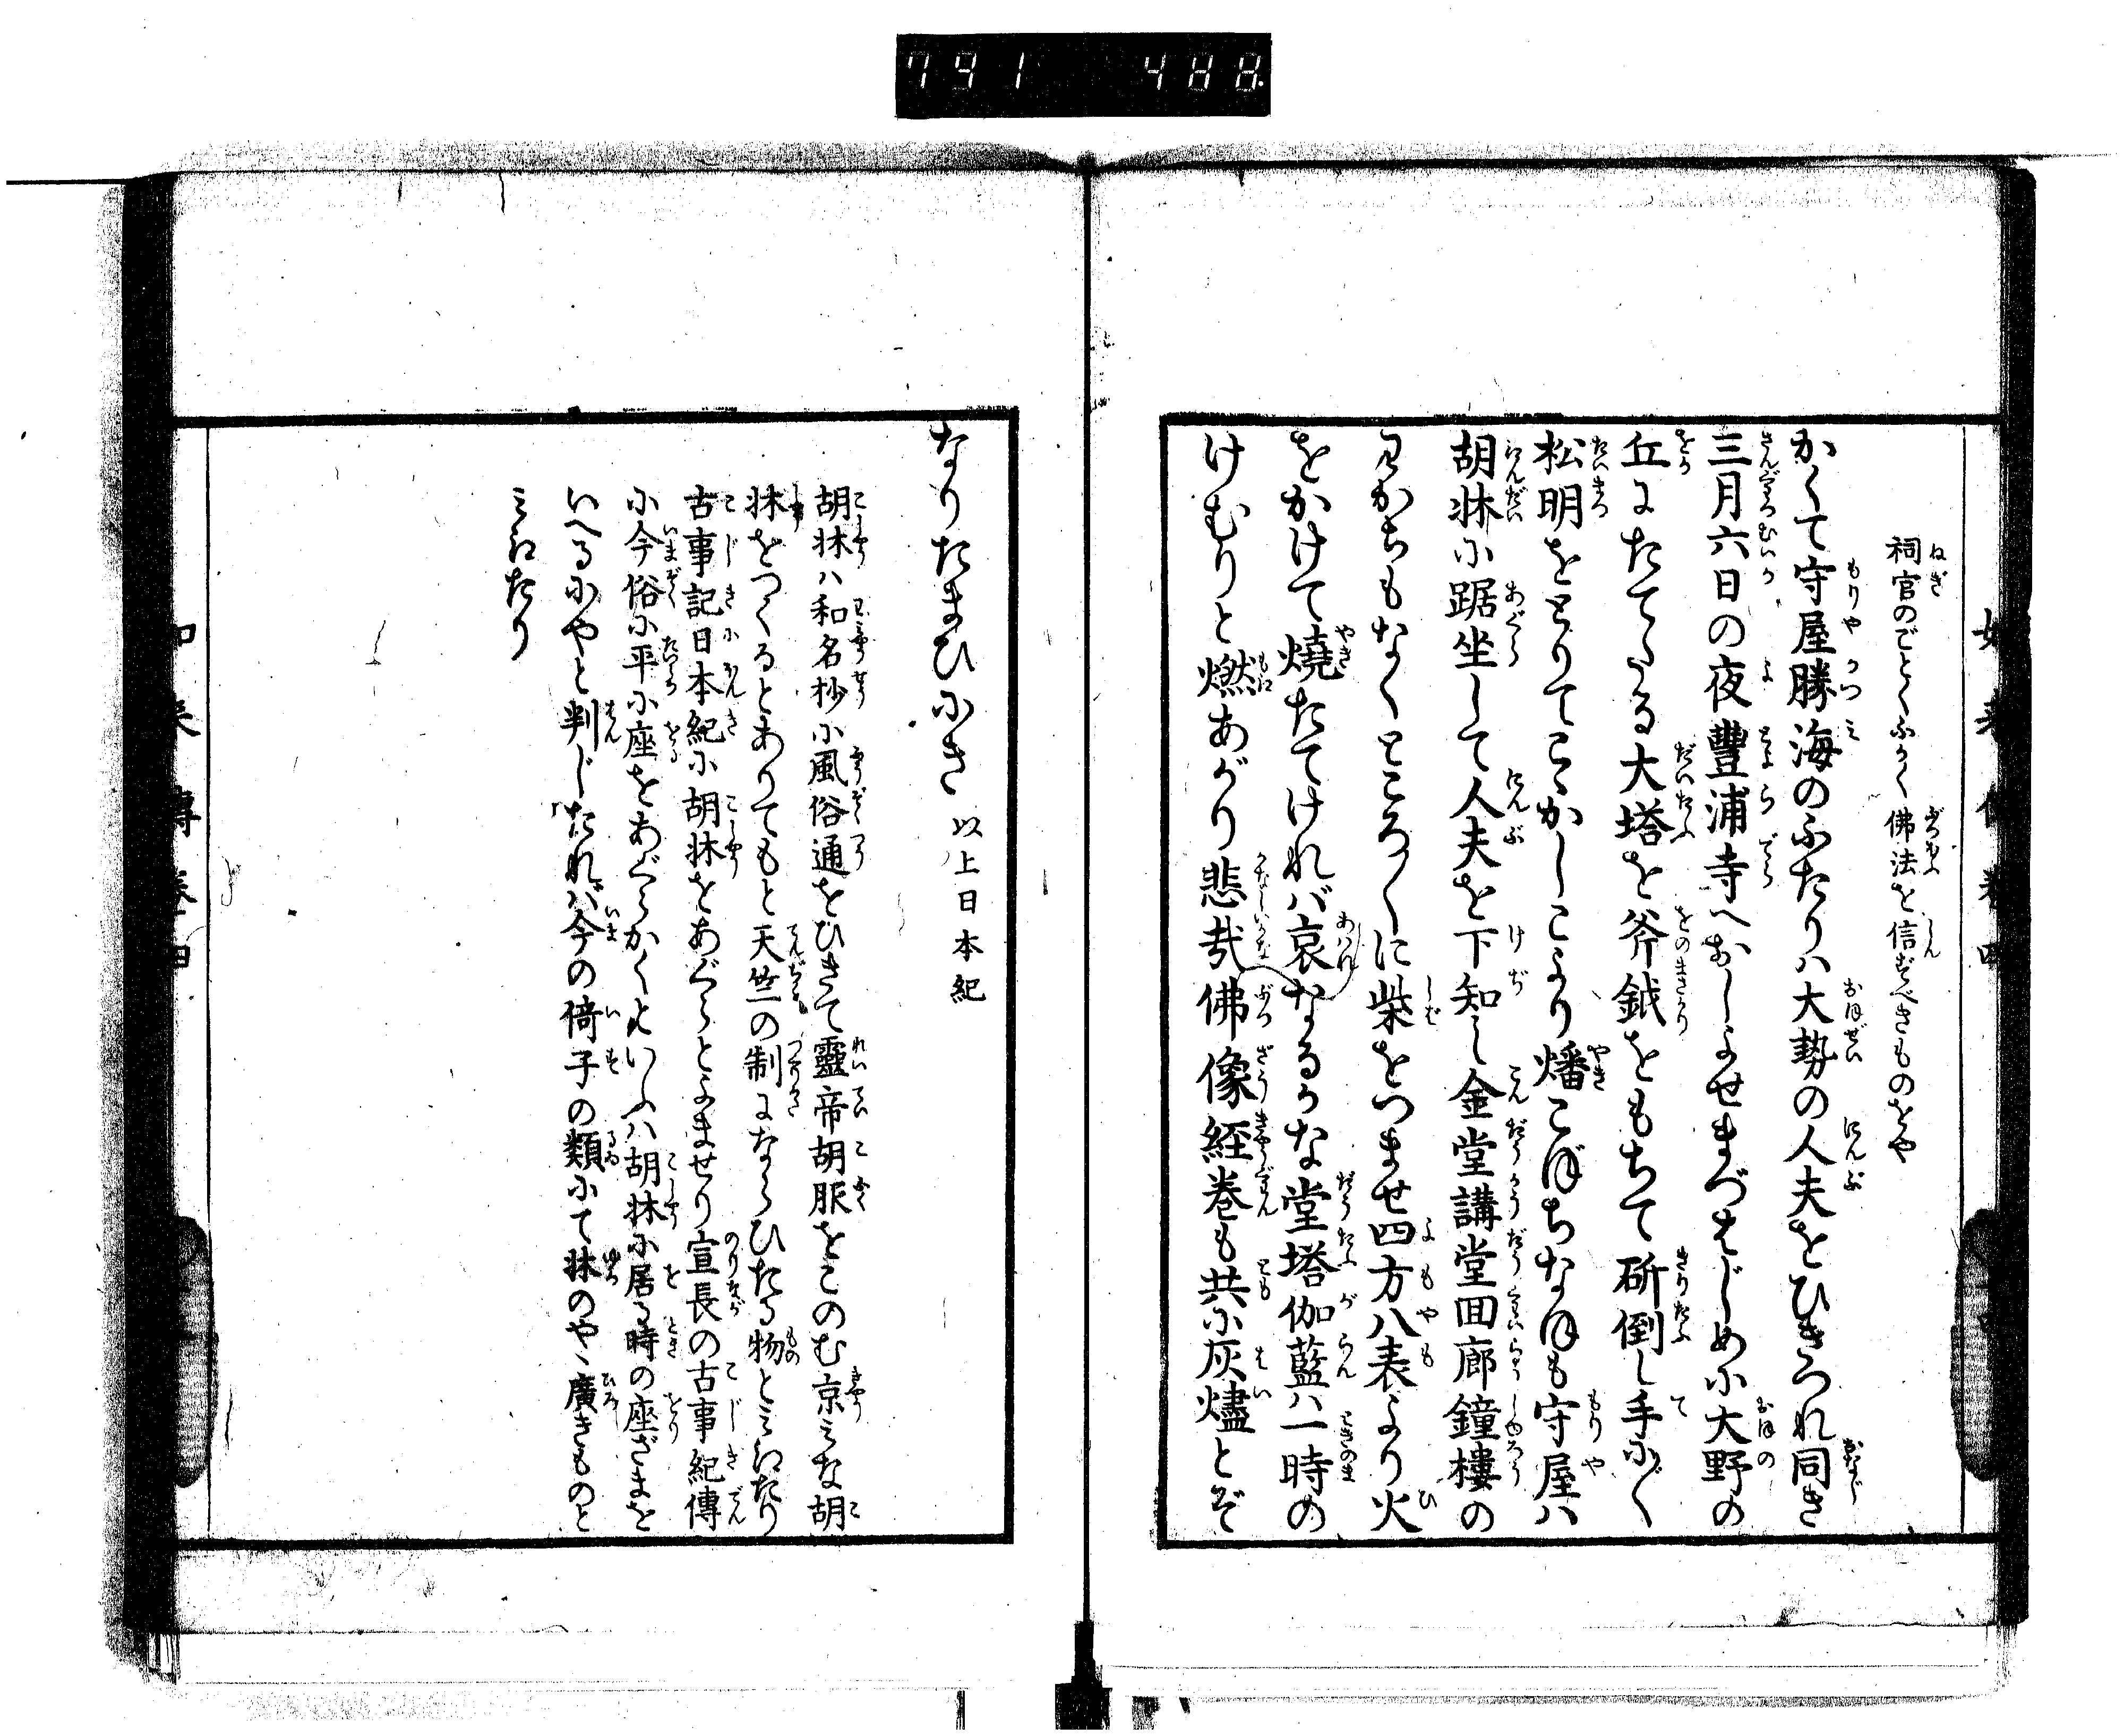 791 488
祠官のごとくふかく佛法を信ずべきものをや
かくて守屋勝海のふたりハ大勢の人夫をひきつれ同き
三月六日の夜豐浦寺へおしよせまづはじめに大野の
丘にたてたる大塔を斧鉞をもちて斫倒し手に〴〵
松明をとりてこゝかしこより燔こぼちなほも守屋ハ
胡牀に踞坐して人夫を下知し金堂講堂回廊鐘樓の
わかちもなくところ〴〵に柴をつませ四方八表より火
をかけて燒たてけれバ哀なるかな堂塔伽藍ハ一時の
けむりと燃あがり悲哉佛像経巻も共に灰燼とぞ
なりたまひにき 以上日本紀
胡牀ハ和名抄に風俗通をひきて靈帝胡服をこのむ京みな胡
牀をつくるとありてもと天竺の制にならひたる物とみえたり
古事記日本紀に胡牀をあぐらとよませり宣長の古事紀傳
に今俗に平に座をあぐらかくといふハ胡牀に居る時の座ざまを
いへるにやと判じたれバ今の倚子の類にて牀のやゝ廣きものと
みえたり